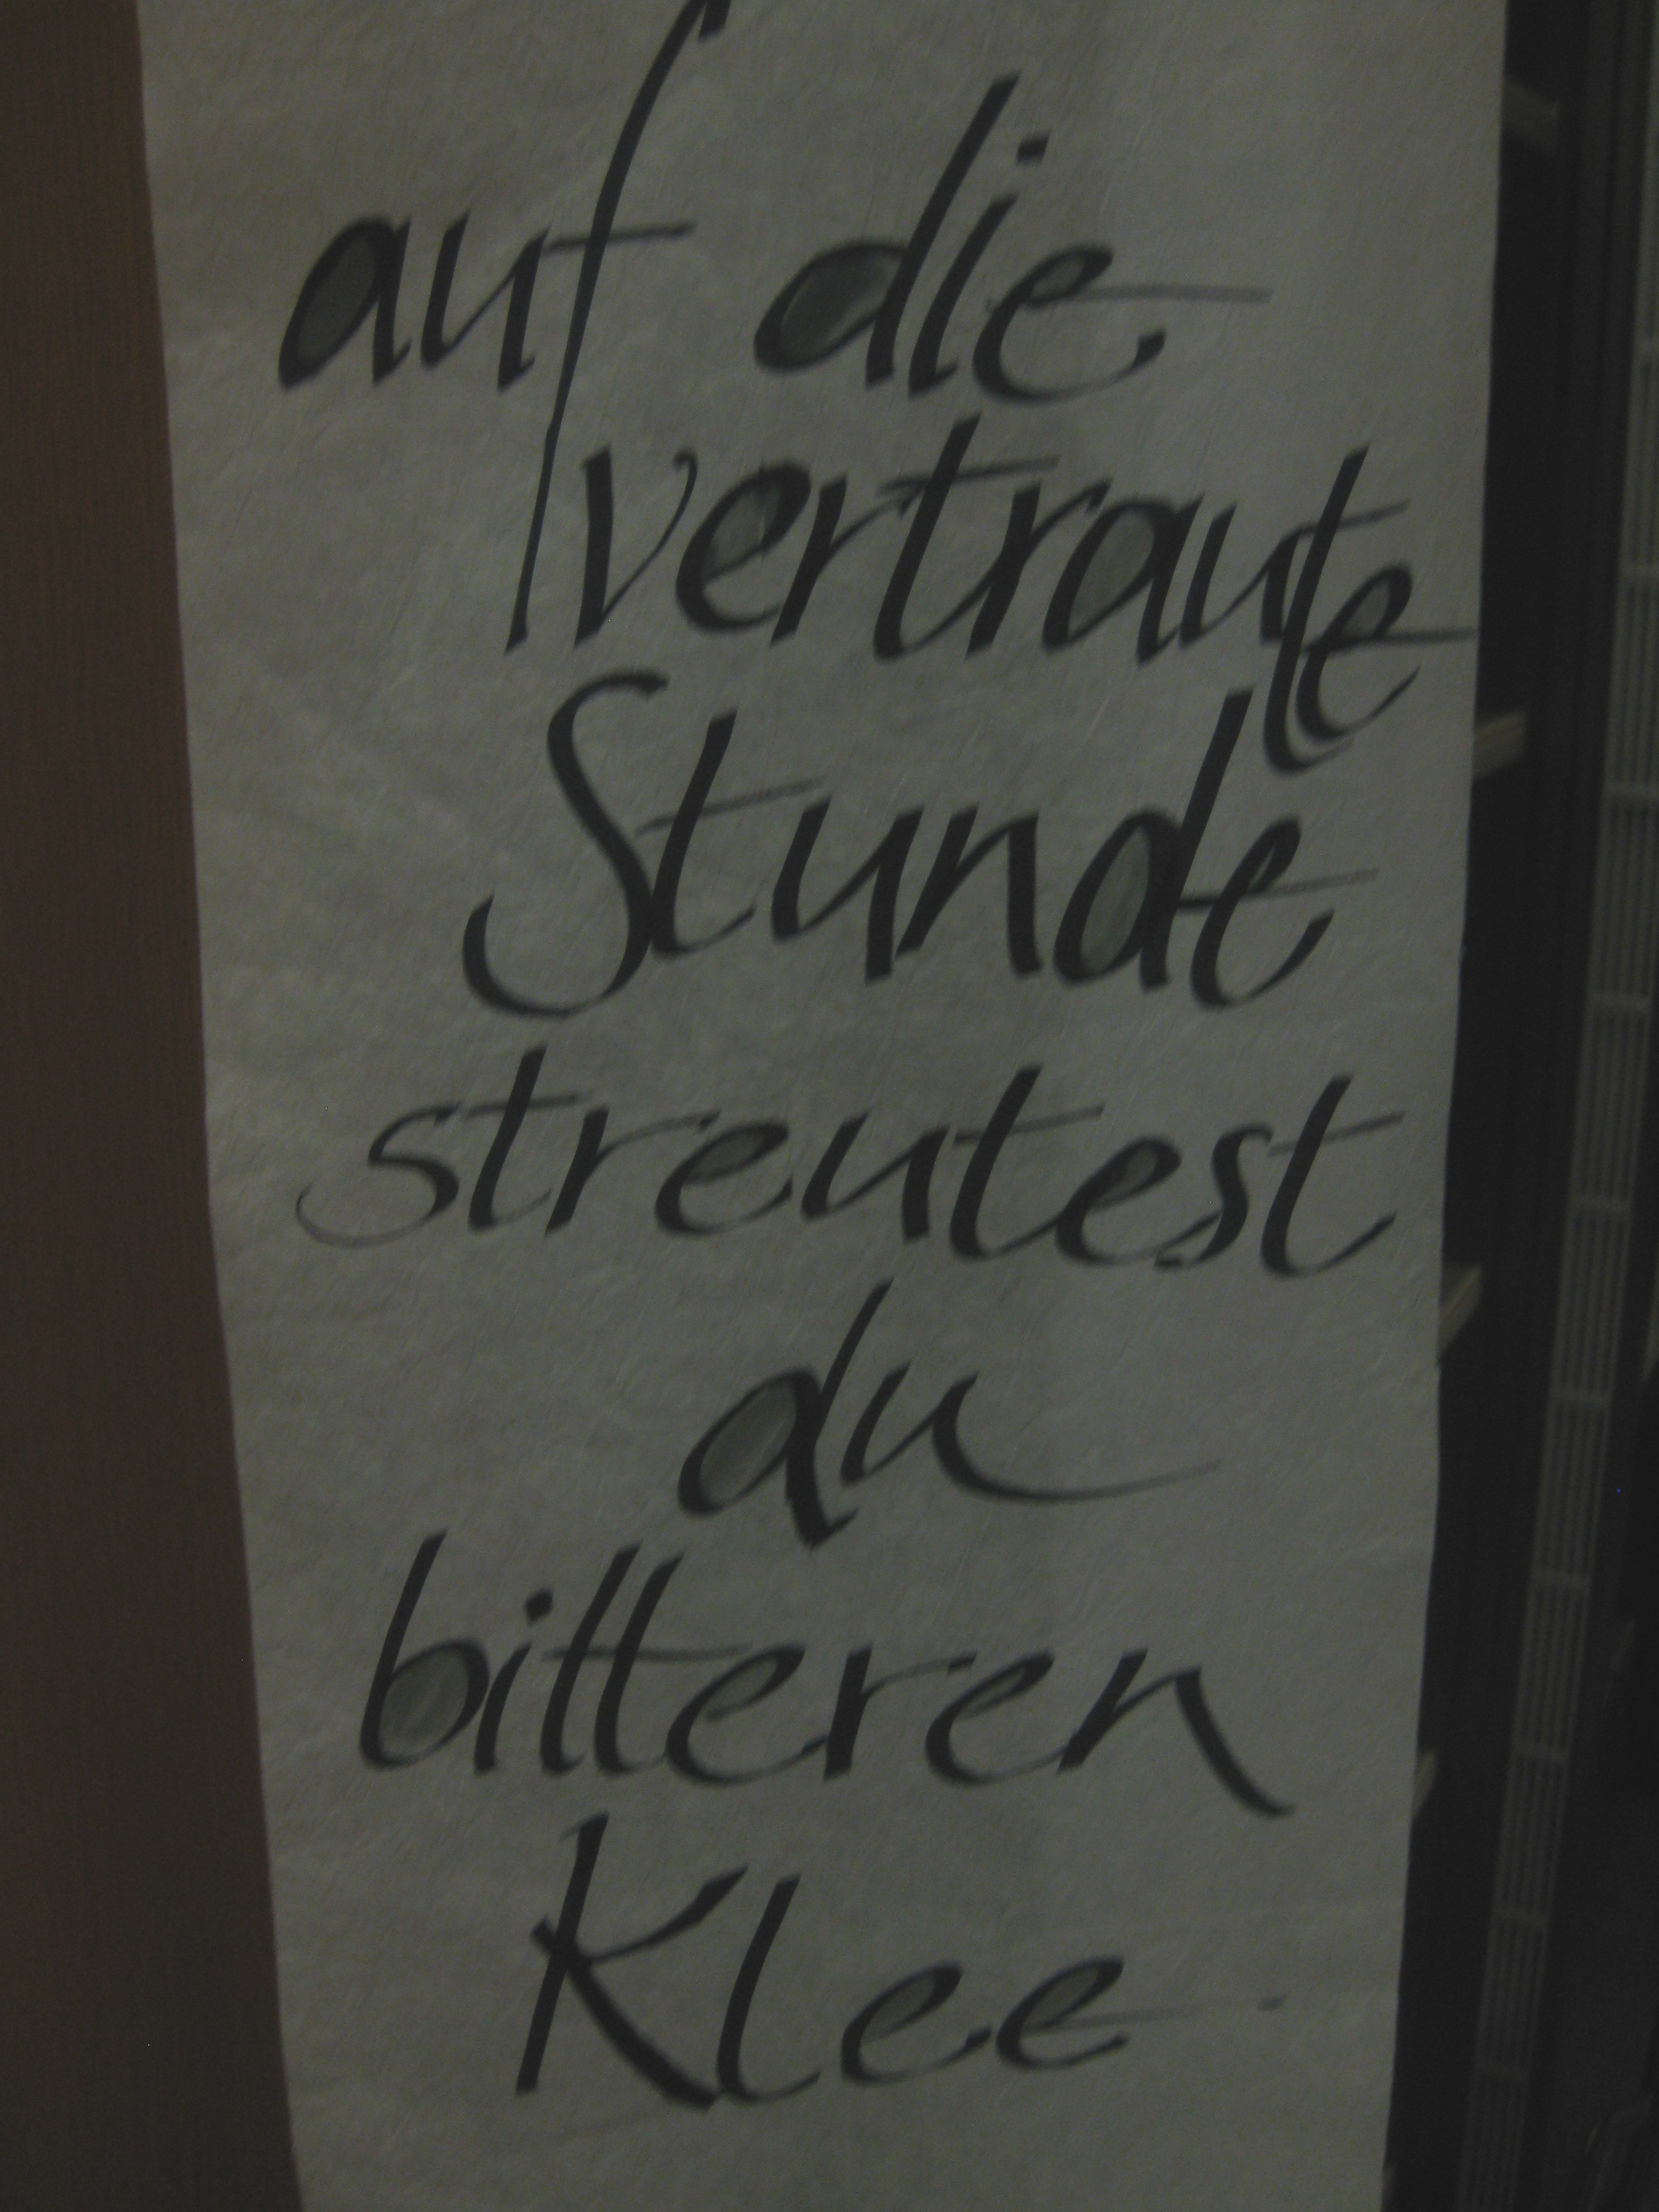 auf die
vertraute
Stunde
streutest
du
bitteren
Klee